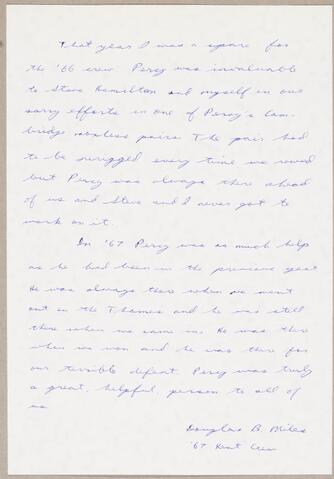 That year I was a spare for
the '66 crew. Percy was invaluable
to Steve Hamilton and myself in our
sorry efforts in one of Percy's Cam-
bridge coxless pairs. The pair had
to be rerigged every time we rowed
but Percy was always there ahead
of us and Steve and I never got to
work on it.
In '67 Percy was as much help
as he had been in the previous year.
He was always there when we went
out on the Thames and he was still
there when we came in. He was there
when we won and he was there for
our terrible defeat. Percy was truly
a great, helpful, person to all of
us.
Douglas B. Miles
'67 Kent Crew